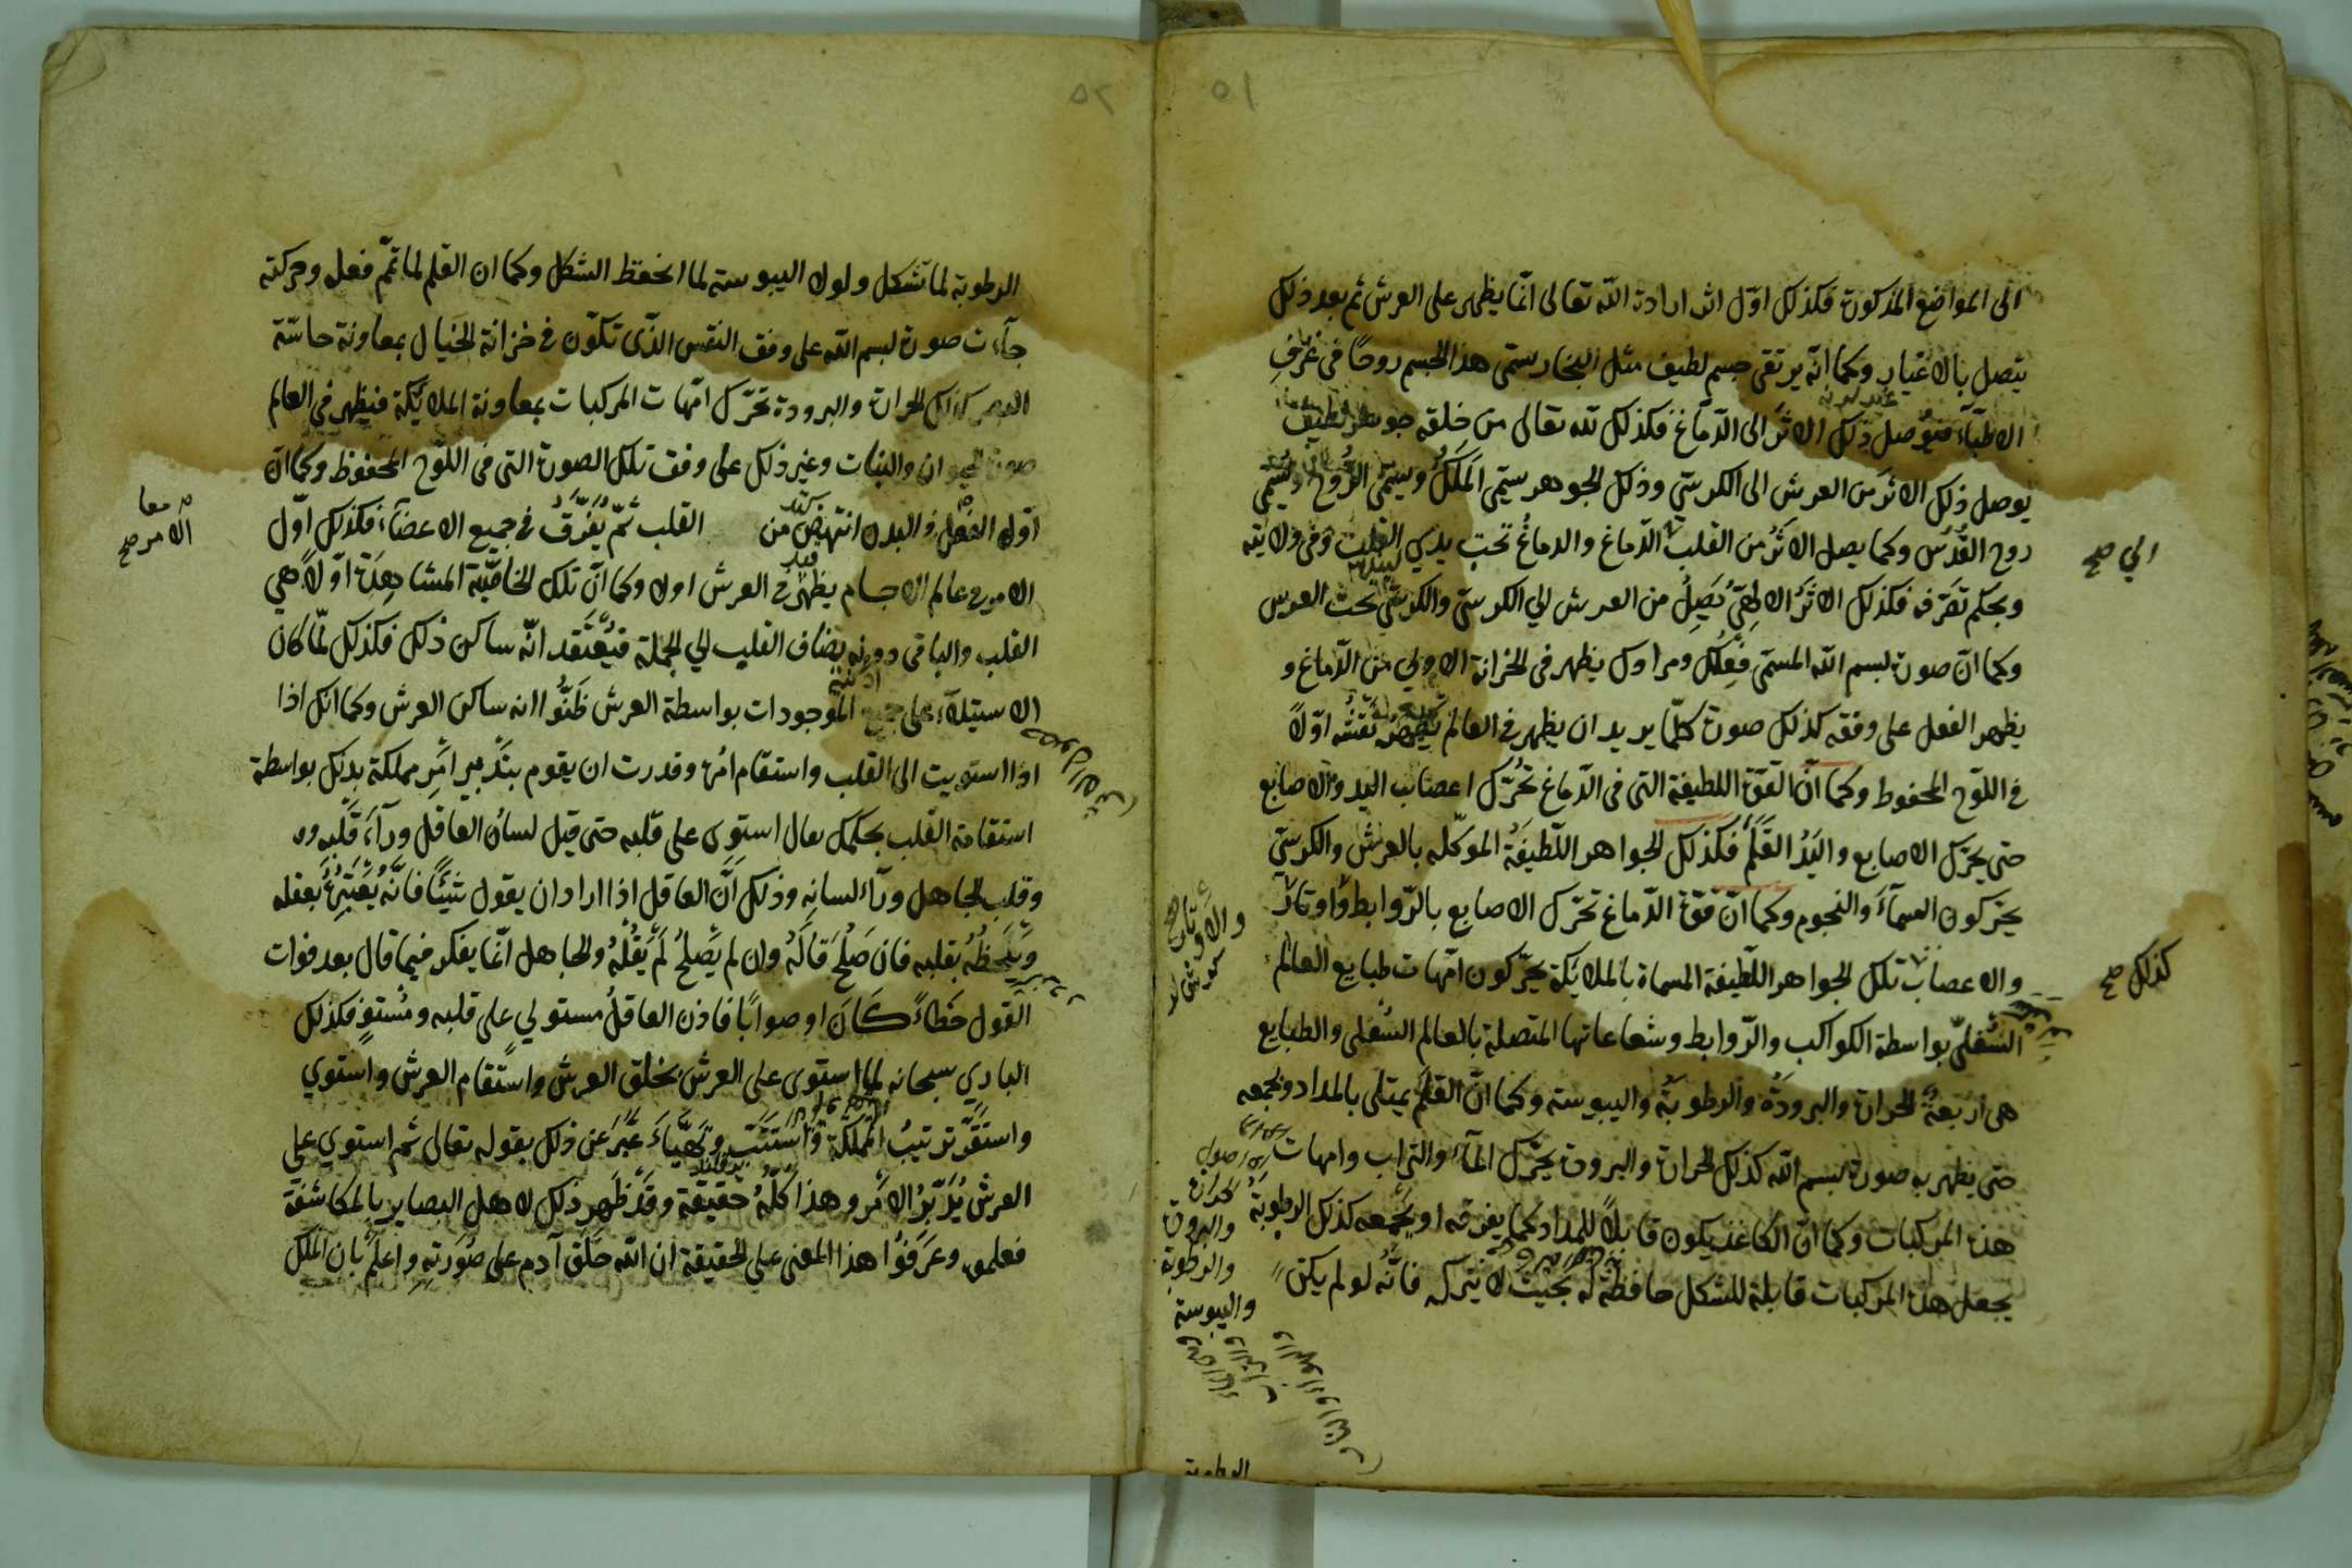 ٥١
الى المواضع المذكورة فكذلك اوّل اثر ارادة الله تعالى انّما يظهر على العرش ثم بعد ذلك
يتصل بالاغيار وكما انّه يرتقى جسم لطيف مثل البخار يسمّى هذا الجسم روحًا في عرف
الاطبّاء فيوصل ذلك الاثر الى الدّماغ فكذلك لله تعالى من خلقه جوهر لطيف
يوصل ذلك الاثر من العرش الى الكرسيّ وذلك الجوهر يسمّى المَلَك ويسمّى الرُّوح ويُسمّى
روح القُدُس وكما يصل الاثر من القلب الدّماغ والدماغُ تحت يدي القلب وفى ولايته
الي صح
وبحكم تصرّفه فكذلك الاثر الالهيّ يَصِلُ من العرش الي الكرسيّ والكرسيّ تحت العرش
وكما انّ صورة بسم الله المسمّى فعلك ومرادك يظهر فى الخزانة الاولي من الدّماغ و
يظهر الفعل على وفقه كذلك صورة كلّما يريد ان يظهر في العالم يظهر نقشه اوّلاً
في اللّوح المحفوظ وكما انّ القوّة اللطيفة التي فى الدّماغ تحرّك اعصاب اليد والاصابع
حتى يحرّك الاصابع واليَدُ القَلَم فكذلك الجواهر اللّطيفَةُ الموكّله بالعرش والكرسيّ
يحرّكون السمآءَ والنجوم وكما انّ قوّة الدّماغ تحرّك الاصابع بالرّوابط واوتار
والاوتار صح
والاعصاب تلك الجواهر اللّطيفة المسماة بالملائكة يحرّكون امّهات طبايع العالم
كذلك صح
السُّفلىّ بواسطة الكواكب والرّوابط وشعاعاتها المتصلة بالعالم السُّفلى والطبايع
هى اربعةٌ الحرارة والبرودَة والرطوبَة واليبوسة وكما انّ القلَم يمتلى بالمداد ويجمعه
حتى يظهر به صورة بسم الله كذلك الحرارة والبرودة يحرّك المآء والتراب وامهات
هذه المركبات وكما انّ الكاغذ يكون قابلاً للمداد كما يفرقه او يجمعه كذلك الرطوبة
يجعل هذه المركبات قابلة للشكل حافظةً له بحيث لا يتركه فانّه لو لم يكن
والبرودة
والرطوبة
واليبوسة
الرطوبة
٥٢
الرطوبة لما تشكل ولولا اليبوسة لما انحفظ الشكل وكما ان القلم لما تمّ فعله وحركته
جآءت صورة بسم الله على وفق النقس الذّى تكوّن في خزانة الخيال بمعاونة حاسّة
البصر كذلك الحرارة والبرودة تحرّك امّهات المركبات بمعاونة الملائكة فيظهر في العالم
صورة الحيوان والنبات وغير ذلك على وفق تلك الصورة التي فى اللّوح المحفوظ وكما انّ
اوّل الفعل في البدن انتهض من القلب ثمّ يُفَرَّقُ في جميع الاعضآء فكذلك اوّل
الامر صح
الامور عالم الاجسام يظهر في العرش اولا وكما انّ تلك الخاصّيّة المشاهدة اوّلاً هي
القلب والباقى دونه يضاف القلب الي الجملة فيُعْتَقد انّه ساكن ذلك فكذلك لمّا كان
الاستيلآء على جميع الموجودات بواسطة العرش ظَنُّوا انه ساكن العرش وكما انك اذا
اذا استويت الى القلب واستقام امره وقدرت ان يقوم بتدبير امر مملكة بدنك بواسطة
استقامة القلب بحكمك يقال استوى على قلبه حتى قيل لسانُ العاقل ورآءَ قلبه
وقلب الجاهل ورآء لسانِه وذلك انّ العاقل اذا اراد ان يقول شيئًا فانّه يعتبره بعقله
ويَلحظُهُ بقلبه فان صَلُحَ قَالَهُ وان لم يَصلُح لَم يَقُلْهُ والجاهل انّما يفكر فيما قال بعد فوات
القول خَطاءً كَانَ او صوابًا فاذن العاقلُ مستولي على قلبه ومُستوٍ فكذلك
الباري سبحانه لما استوى على العرش بخلق العرش واستقام العرش واستوي
واستقَرَّ ترتيبُ المملكة واستتبّ وتهيّاءَ عَبَّرَ عن ذلك بقوله تعالى ثم استوي على
العرش يُدَبّرُ الامر وهذا كلّهُ حقيقة وقد ظَهر ذلك لاهل البصاير بالمكاشفة
فعلموا وعرفوُا هذا المعنى على الحقيقة ان الله خلَق آدم على صُوَرتِه واعلَم بان الملك